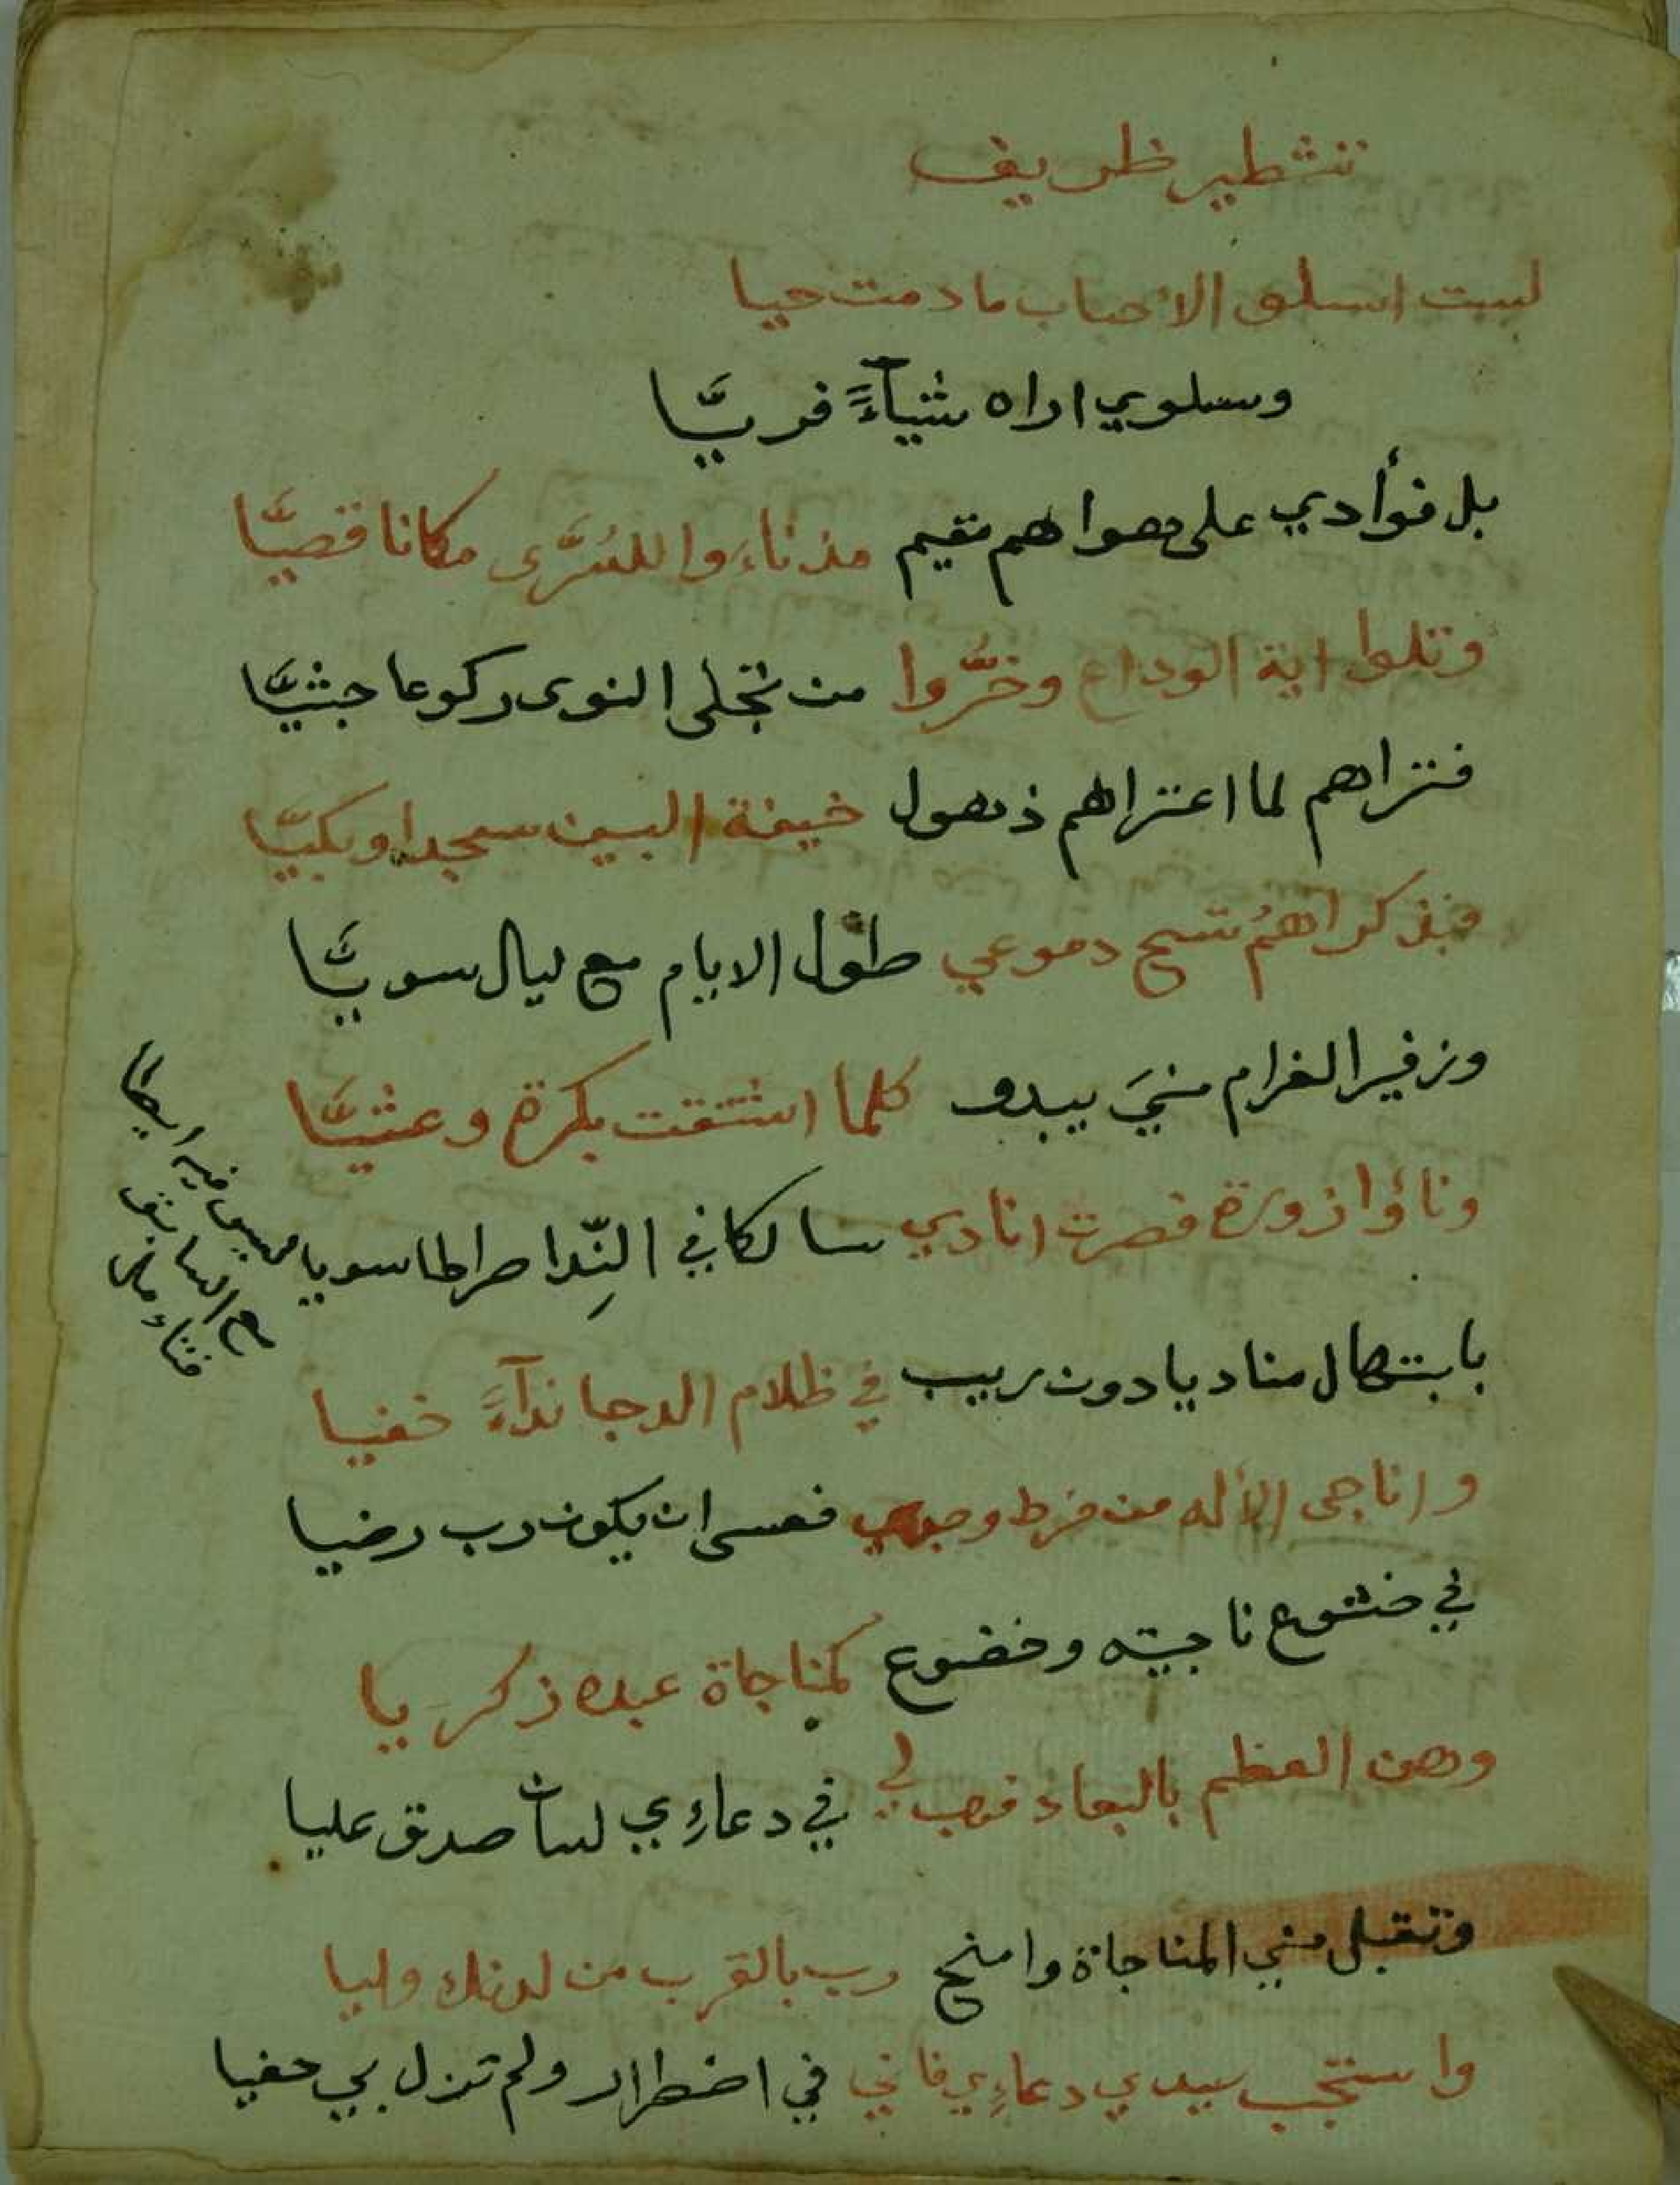 تشطير ظريف
لست اسلو الاحباب ما دمت حيا
وسلوي اراه شيآءً فريَّا
بل فوأدي على هواهم مقيم مذ ناءوا للسُرَّى مكانا قصيَّا
وتلوا اية الوداع وخَرُّوا من تجلى النوى ركوعا جثيَّا
فتراهم لما اعتراهم ذهول خيفة البين سجدا وبكيَّا
فبذكراهمُ تسح دموعي طوَل الايام مع ليال سويَّا
وزفير الغرام منيَ يبدو كلما اشتقت بكرة وعشيَّا
وناؤا زورة فصرت انادي سالكا في النِّدا صراطا سويا
بابتهال مناديا دون ريب في ظلام الدجا ندآءً خفيا
واناجى الأله من فرط وجدي فعسى ان يكون رب رضيا
في خشوع ناجيته وخضوع كمناجاة عبده زكريا
وهن العظم بالبعاد فهب لي في دعاءِي لسان صدق عليا
وتقبل مني المناجاة وامنح رب بالقرب من لدنك وليا
واستجب سيدي دعاءِي فاني في اضطرار ولم تزل بي حفيا
ايطا
مع السابق